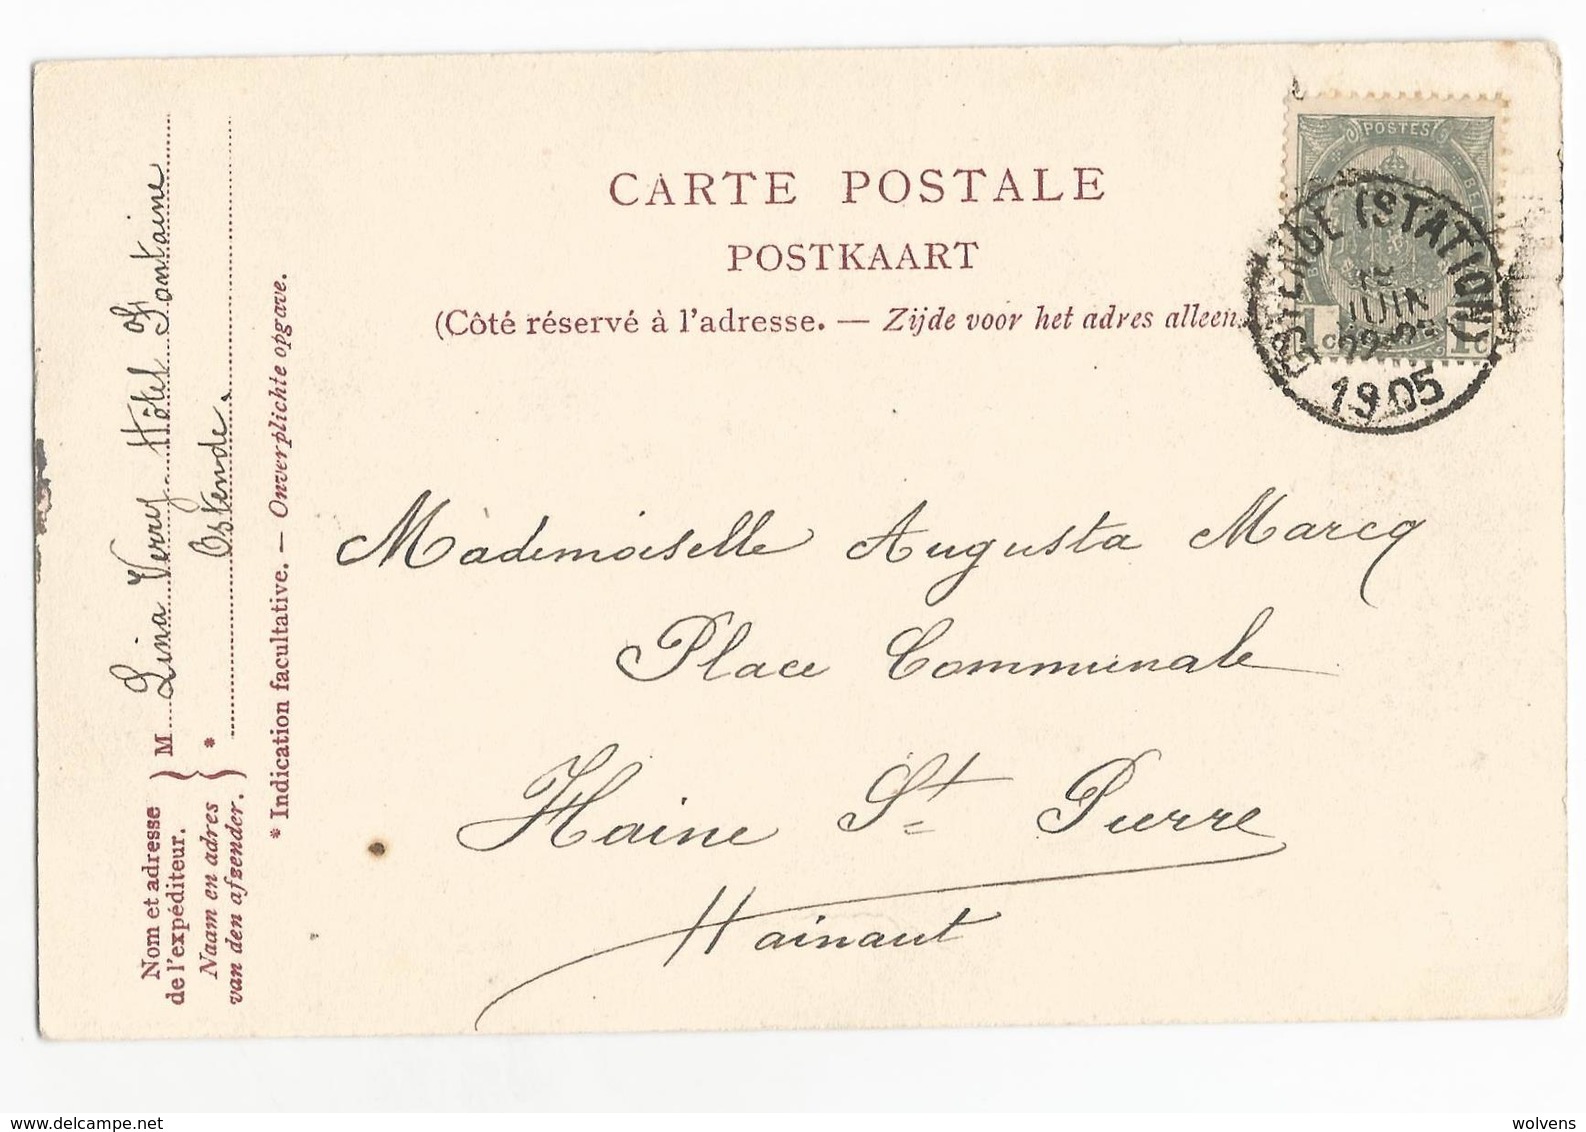 CARTE POSTALE
POSTKAART
(Côté réservé à l'adresse. — Zijde voor het adres alleen.
POSTES
1c 1c
OSTENDE (STATION)
JUIN
1905
Mademoiselle Augusta Marcq
Place Communale
Haine St Pierre
Hainaut
Nom et adresse
de l'expéditeur.
Naam en adres
van den afzender.
M Lina Verry Hôtel Fontaine
* Ostende.
* Indication facultative. — Onverplichte opgave.
www.delcampe.net
wolvens